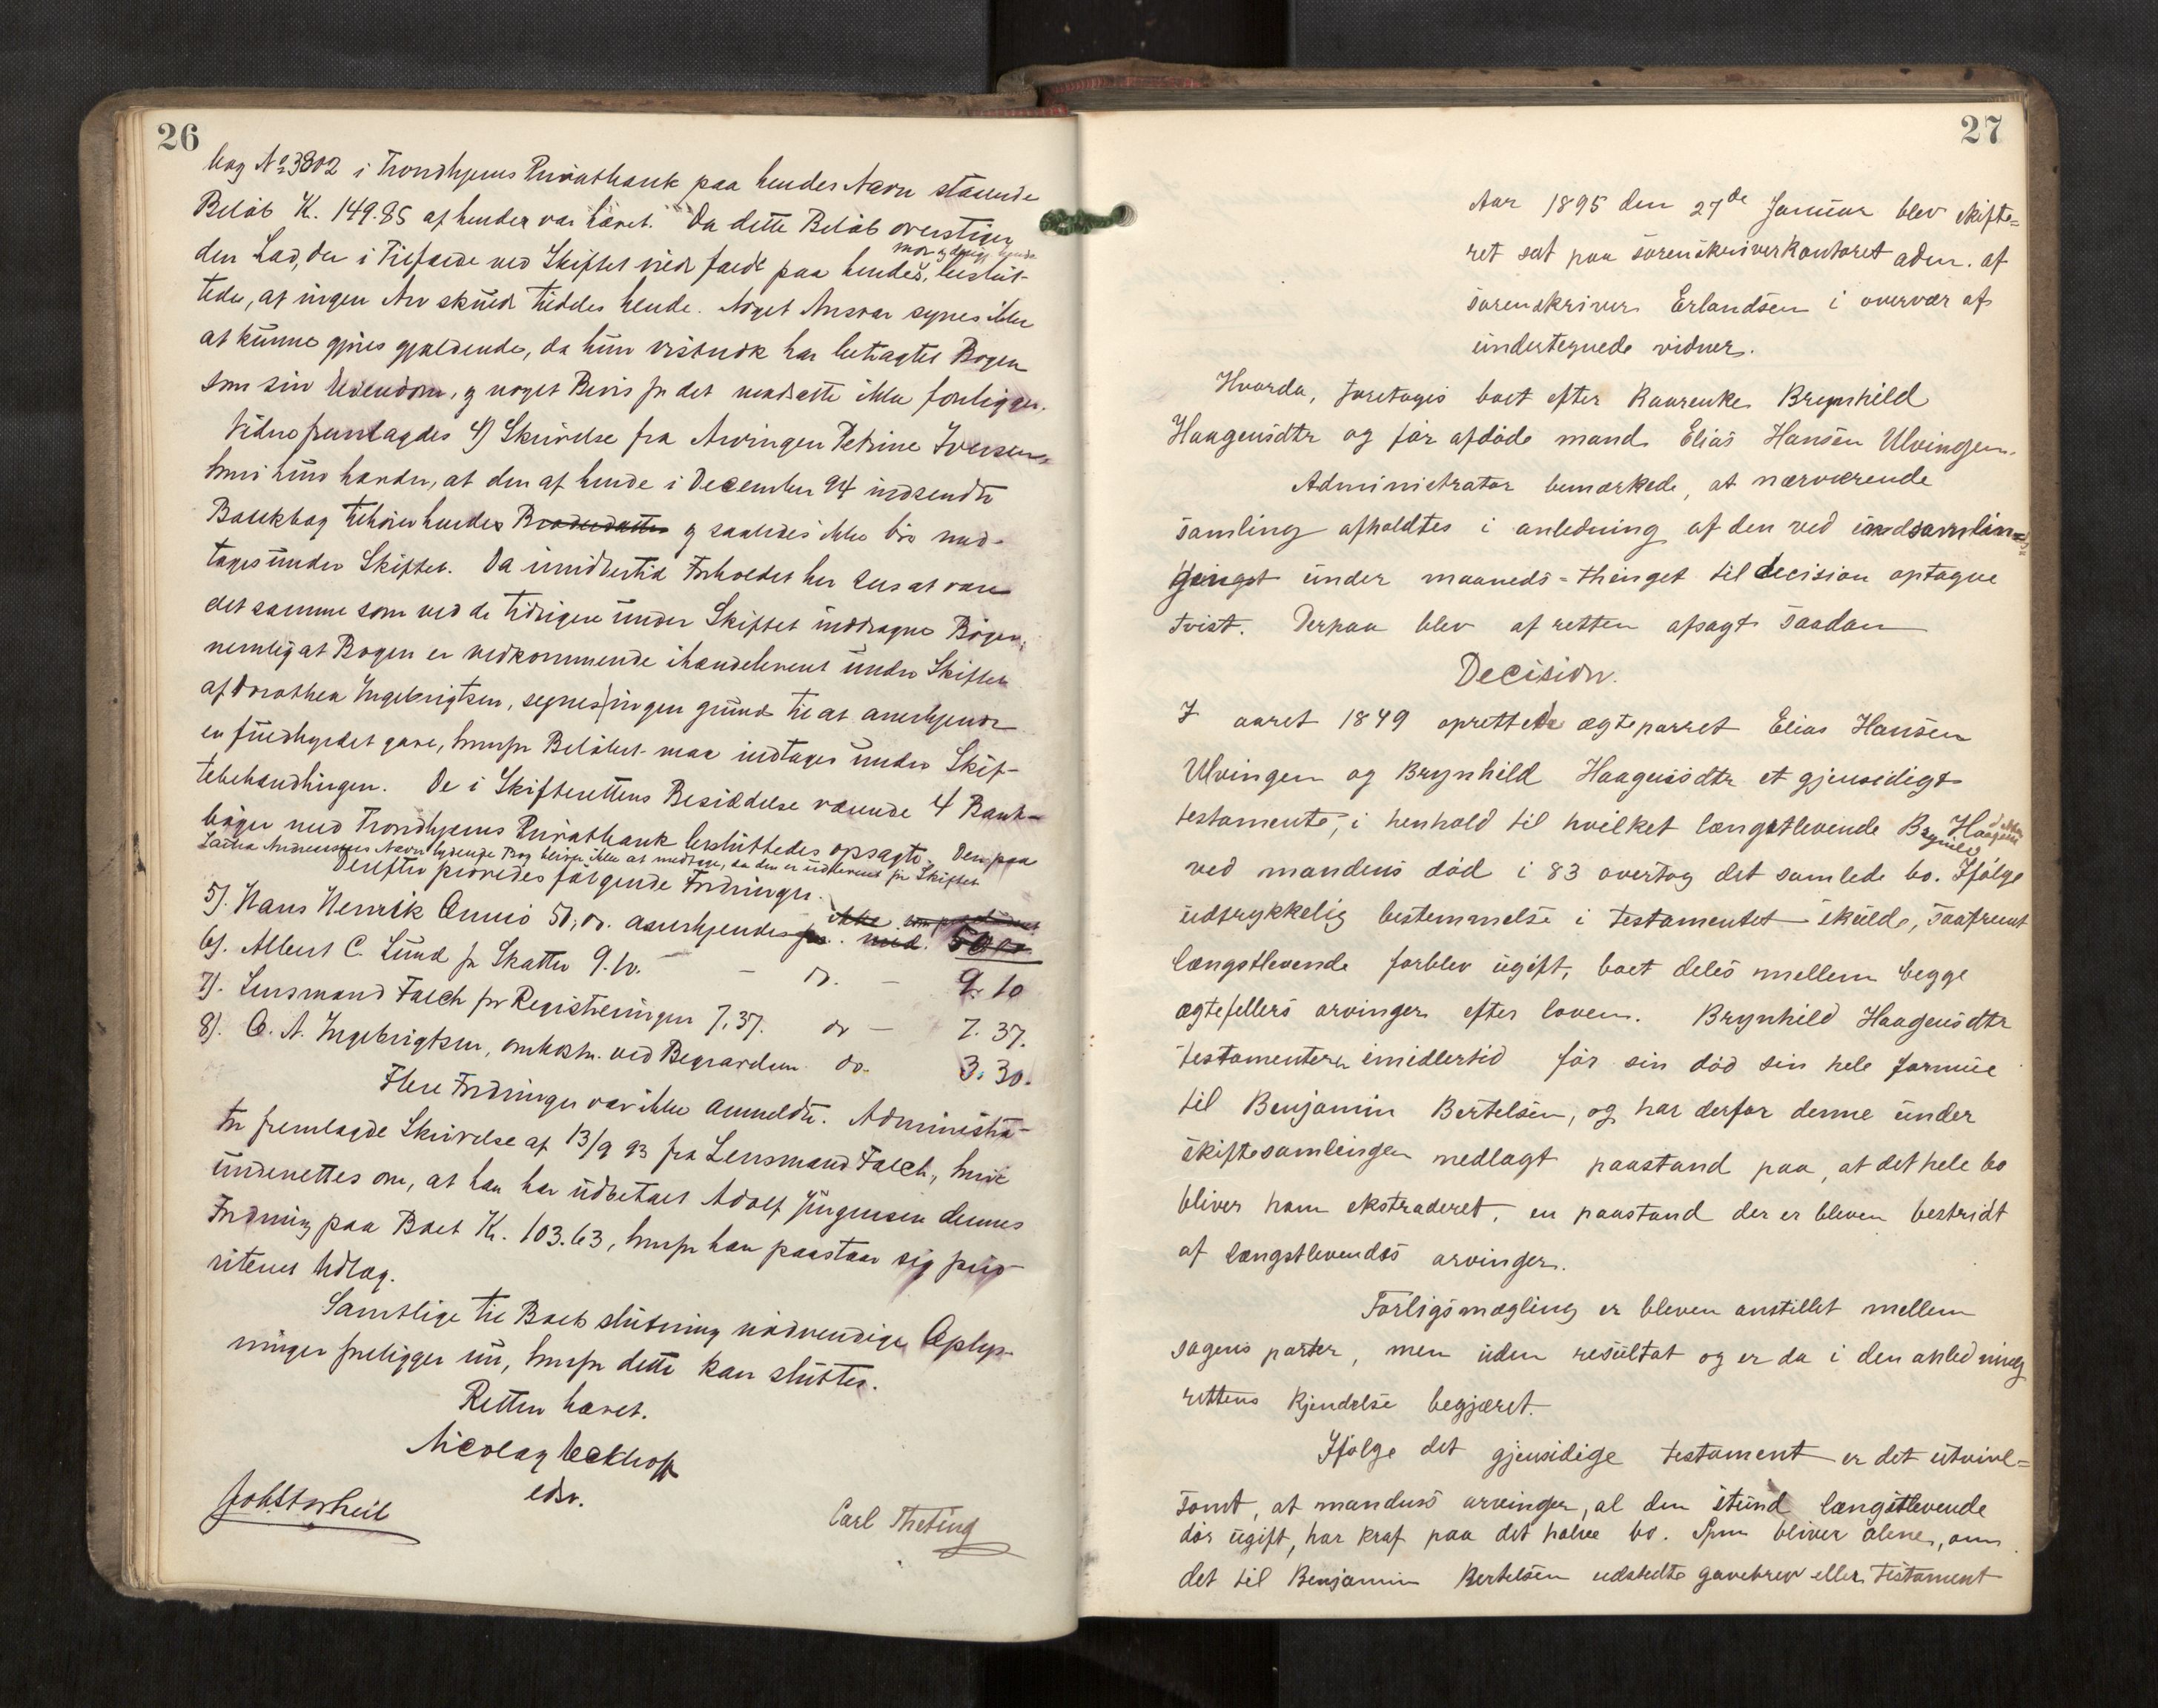 26
bog No 3802 i Trondhjems Privatbank paa hendes Navn staaende
Beløb K. 149.85 af hender var hævet. Da dette Beløb overstiger
den Lod, der i Tilfælde ved Skiftet vilde falde paa hendes, beslut-
tedes, at ingen Arv skulde tilddeles hende. Noget Ansvar synes ikke
at kunne gjøres gjældende, da hun vistnok har betragtet Bogen
som sin Eiendom, og noget Bevis for det modsatte ikke foreligger.
Videre fremlagdes 4) Skrivelse fra Arvingen Petrine Iversen,
hvori hun hævder, at den af hende i December 94 indsendte
Bankbog tilhører hendes Broderdatter og saaledes ikke bør med-
tages under Skiftet. Da imidlertid Forholdet her sees at være
det samme som ved de tidligere under Skiftet inddragne Bøger,
nemlig at Bogen er vedkommende ihændeleveret under Skiftet
af Dorothea Ingebrigtsen, synes ingen grund til at anerkjende
en fuldbyrdet gave, hvorfor Beløbet maa indtages under Skif-
tebehandlingen. De i Skifterettens Besiddelse værende 4 Bank-
bøger med Trondhjems Privatbank besluttedes opsagte. Den paa
Navn lydende Bog bliver ikke at medtage, da den er udleveret før Skiftet
Derefter prøvedes følgende Fordringer.
5). Hans Henrik Onnio 50,00. anerkjendes ikke med 50 00
6). Albert C. Lund for Skatter 9.10. - do. - 9. 10
7). Lensmand Falch for Registreringen 7,37. do - 7. 37.
8). O. A. Ingebrigtsen, omkostn. ved Begravelsen do. 3. 30.
Flere Fordringer var ikke anmeldte. Administra-
tor fremlagde Skrivelse af 13/9 93 fra Lensmand Falch, hvori
underrettes om, at han har udbetalt Adolf Jürgensen dennes
Fordring paa Boet Kr. 103.63, hvorfor han paastaar sig prio-
riteret Udlæg.
Samtlige til Boets slutning nødvendige Oplys-
ninger foreligger nu, hvorfor dette kan sluttes.
Retten hævet.
Nicolay Eckhoff
edsv.
Carl Theting
27
Aar 1895 den 27de Januar blev skifte=
ret sat paa sorenskriverkontoret adm. af
sorenskriver Erlandsen i overvær af
undertegnede vidner.
Hvorda, foretages boet efter Kaarenke Brynhild
Haagensdtr og før afdøde mand Elias Hansen Ulvingen.
Administrator bemærkede, at nærværende
samling afholdtes i anledning af den ved
under maaneds=thinget til decision optagne
tvist. Derpaa blev af retten afsagt saadan
Decision.
I aaret 1849 oprettede ægteparret Elias Hansen
Ulvingen og Brynhild Haagensdtr et gjensidigt
testamente, i henhold til hvilket længstlevende Brynild Haagensdatter
ved mandens død i 83 overtog det samlede bo. Ifølge
udtrykkelig bestemmelse i testamentet skulde, saafremt
længstlevende forblev ugift, boet deles mellem begge
ægtefellers arvinger efter loven. Brynhild Haagensdtr
testamentere imidlertid før sin død sin hele formue
til Benjamin Bertelsen, og har derfor denne under
skiftesamlingen nedlagt paastand paa, at det hele bo
bliver ham ekstraderet, en paastand der er bleven bestridt
af længstlevendes arvinger.
Forligsmægling er bleven anstillet mellem
sagens parter, men uden resultat og er da i den anledning
rettens kjendelse begjæret.
Ifølge det gjensidige testament er det utvivl=
somt, at mandens arvinger, al den stund længstlevende
dør ugift, har kraf paa det halve bo. Spm bliver alene, om
det til Benjamin Bertelsen udstedte gavebrev eller testament